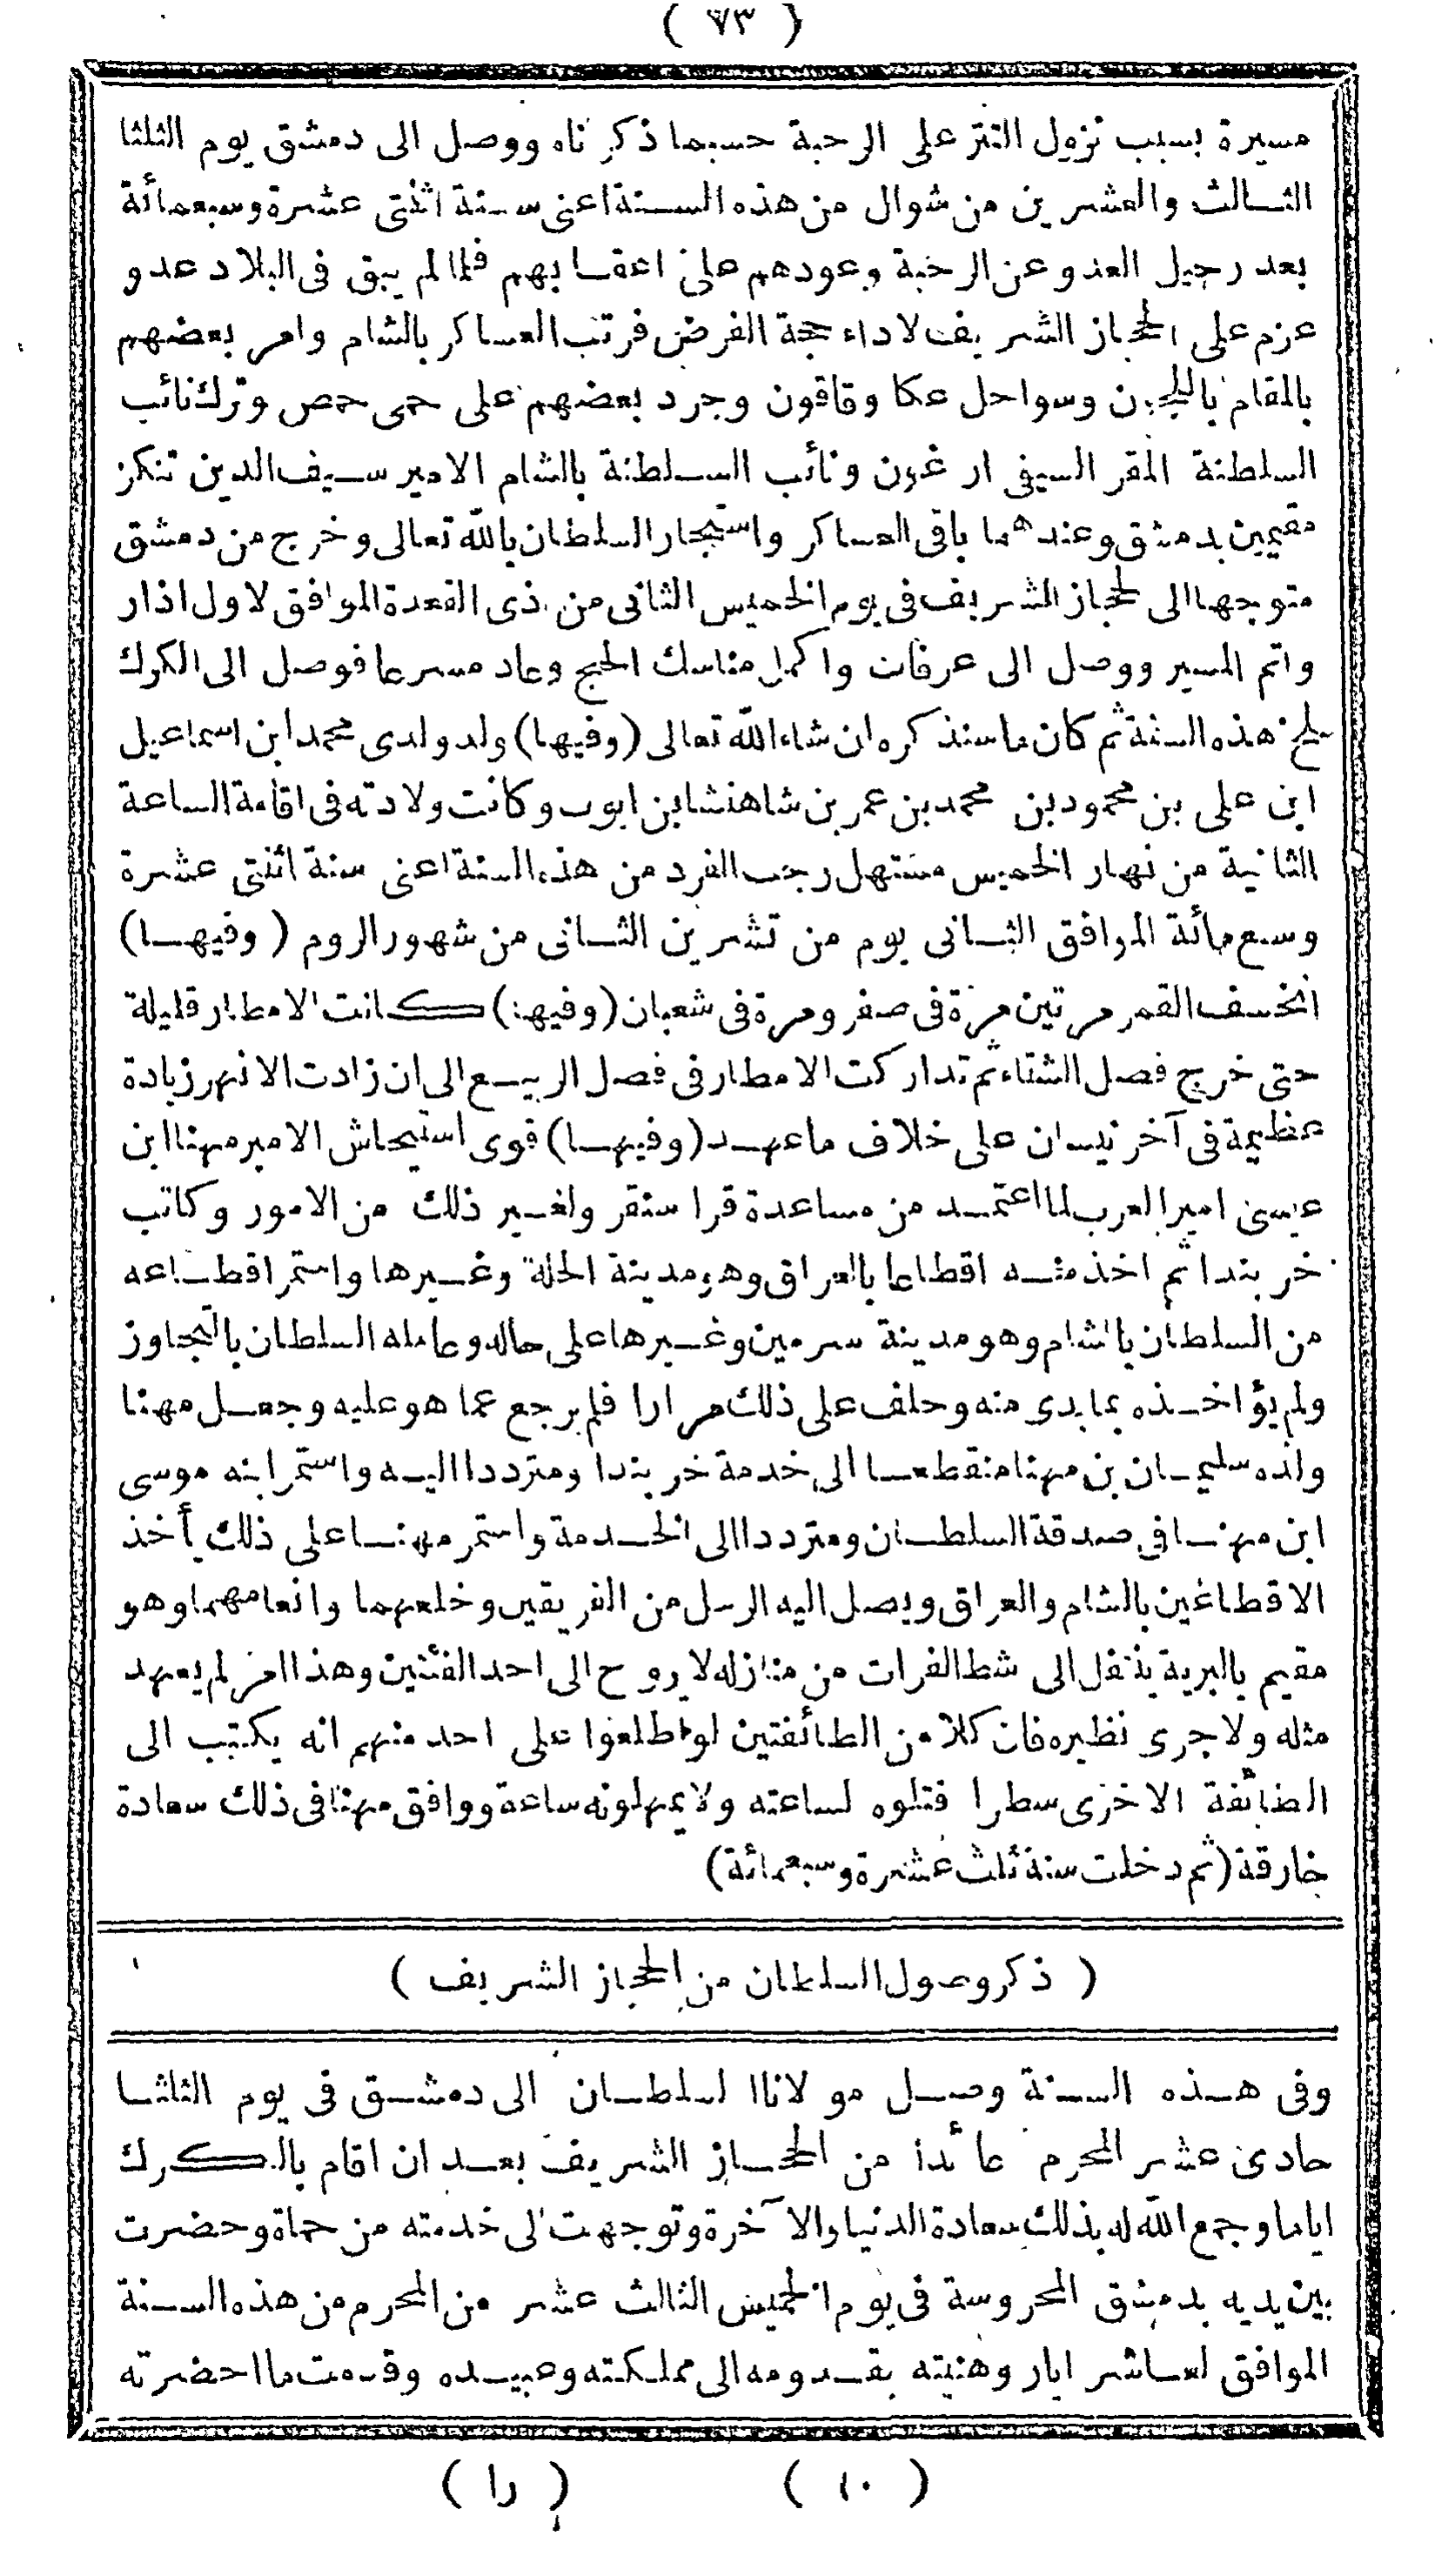 ( ٧٣ )
مسيرة بسبب نزول التتر على الرحبة حسبما ذكرناه ووصل الى دمشق يوم الثلثا
الثالث والعشرين من شوال من هذه السنة اعنى سنة اثنتى عشرة وسبعمائة
بعد رحيل العدو عن الرحبة وعودهم على اعقابهم فلما لم يبق فى البلاد عدو
عزم على الحجاز الشريف لاداء حجة الفرض فرتب العساكر بالشام وامر بعضهم
بالمقام باللجون وسواحل عكا وقاقون وجرد بعضهم على حمى حمص وترك نائب
السلطنة المقر السيفى ارغون ونائب السلطنة بالشام الامير سيف الدين تنكز
مقيمين بدمشق وعندهما باقى العساكر واستجار السلطان بالله تعالى وخرج من دمشق
متوجها الى الحجاز الشريف فى يوم الخميس الثانى من ذى القعدة الموافق لاول اذار
واتم المسير ووصل الى عرفات واكمل مناسك الحج وعاد مسرعا فوصل الى الكرك
سلخ هذه السنة ثم كان ما سنذكره ان شاء الله تعالى (وفيها) ولد ولدى محمد ابن اسماعيل
ابن على بن محمود بن محمد بن عمر بن شاهنشا بن ايوب وكانت ولادته فى اقامة الساعة
الثانية من نهار الخميس مستهل رجب الفرد من هذه السنة اعنى سنة اثنتى عشرة
وسبع مائة الموافق الثانى يوم من تشرين الثانى من شهور الروم (وفيها)
انخسف القمر مرتين مرة فى صفر ومرة فى شعبان (وفيها) كانت الامطار قليلة
حتى خرج فصل الشتاء ثم تداركت الامطار فى فصل الربيع الى ان زادت الانهر زيادة
عظيمة فى آخر نيسان على خلاف ما عهد (وفيها) قوى استيحاش الامير مهنا ابن
عيسى امير العرب لما اعتمد من مساعدة قرا سنقر ولغير ذلك من الامور وكاتب
خربندا ثم اخذ منه اقطاعا بالعراق وهو مدينة الحلة وغيرها واستمر اقطاعه
من السلطان بالشام وهو مدينة سرمين وغيرها على حاله وعامله السلطان بالتجاوز
ولم يؤاخذه بما بدى منه وحلف على ذلك مرارا فلم يرجع عما هو عليه وجعل مهنا
ولده سليمان بن مهنا منقطعا الى خدمة خربندا ومترددا اليه واستمر ابنه موسى
ابن مهنا فى صدقة السلطان ومترددا الى الخدمة واستمر مهنا على ذلك يأخذ
الاقطاعين بالشام والعراق ويصل اليه الرسل من الفريقين وخلعهما وانعامهما وهو
مقيم بالبرية ينتقل الى شط الفرات من منازله لا يروح الى احد الفئتين وهذا امر لم يعهد
مثله ولا جرى نظيره فان كلا من الطائفتين لو اطلعوا على احد منهم انه يكتب الى
الطائفة الاخرى سطرا قتلوه لساعته ولا يمهلونه ساعة ووافق مهنا فى ذلك سعادة
خارقة (ثم دخلت سنة ثلث عشرة وسبعمائة)
( ذكر وصول السلطان من الحجاز الشريف )
وفى هذه السنة وصل مولانا السلطان الى دمشق فى يوم الثلثا
حادى عشر المحرم عائدا من الحجاز الشريف بعد ان اقام بالكرك
اياما وجمع الله له بذلك سعادة الدنيا والآخرة وتوجهت الى خدمته من حماة وحضرت
بين يديه بدمشق المحروسة فى يوم الخميس الثالث عشر من المحرم من هذه السنة
الموافق لعاشر ايار وهنيته بقدومه الى مملكته وعبيده وقدمت ما احضرته
( ١٠ ) ( را )